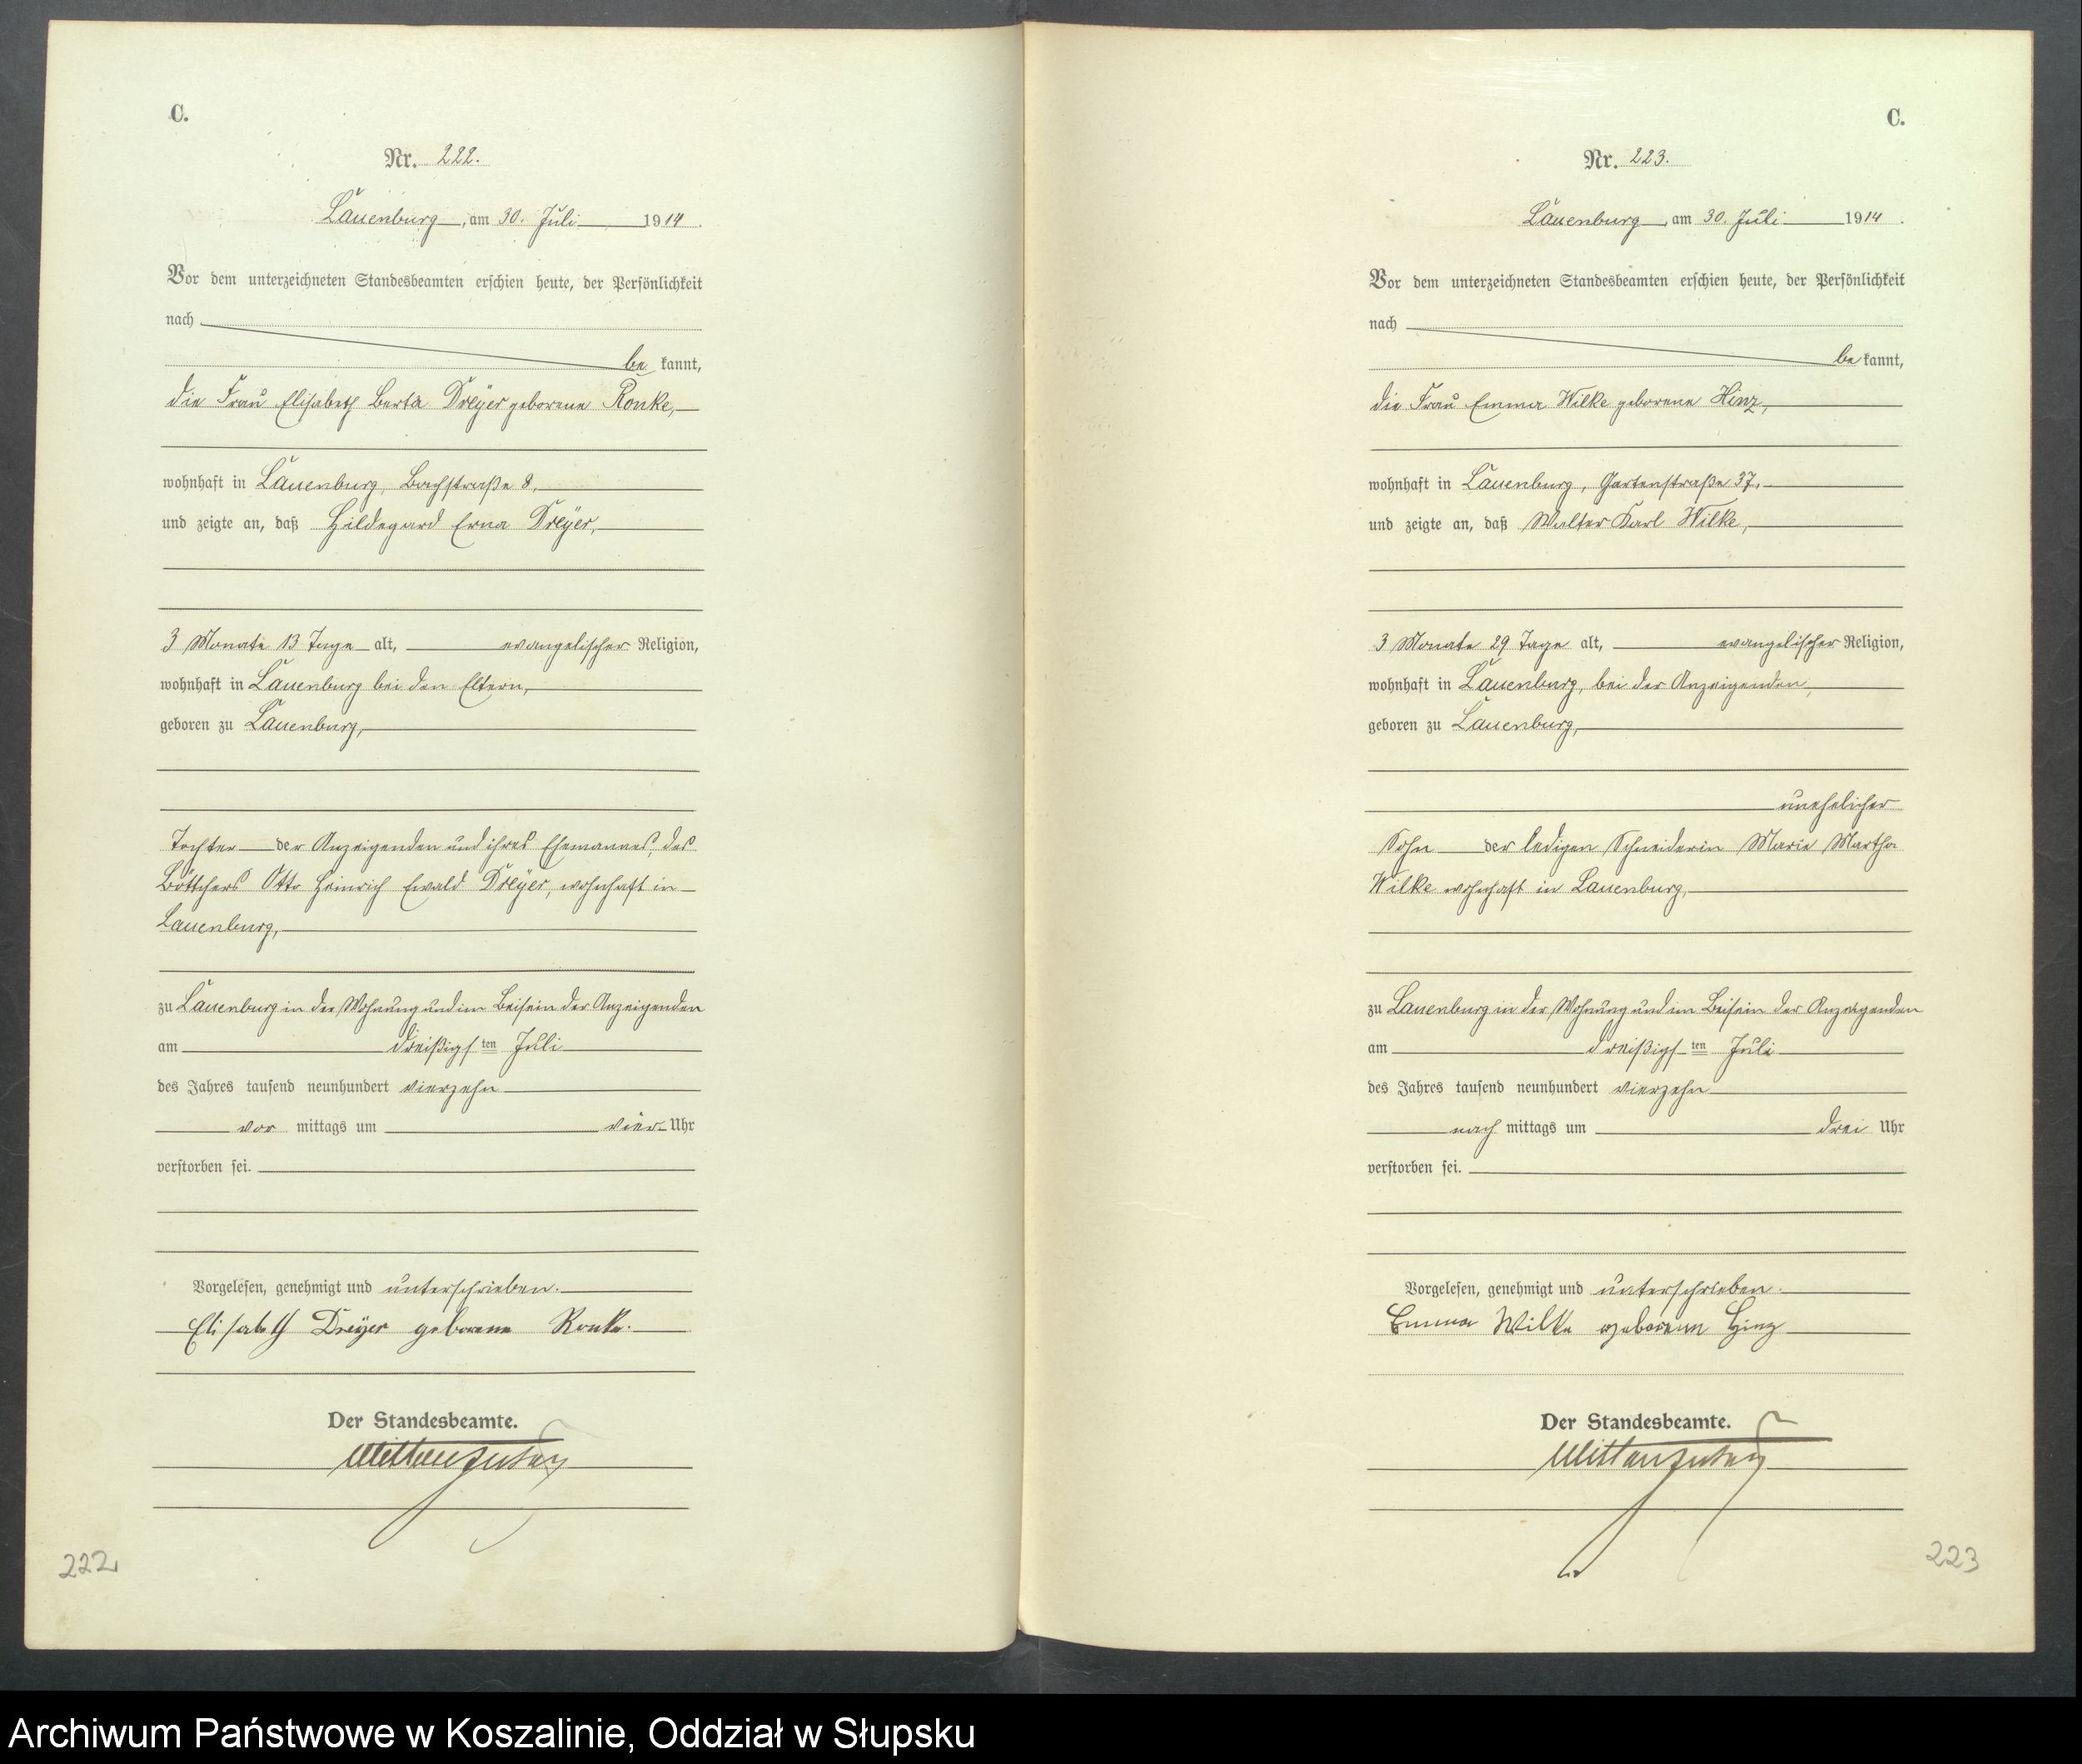 C.
Nr. 222.
Lauenburg, am 30. Juli 1914.
Vor dem unterzeichneten Standesbeamten erschien heute, der Persönlichkeit
nach
be kannt,
die Frau Elisabeth Berta Dreyer geborene Ronke,
wohnhaft in Lauenburg, Bachstraße 8,
und zeigte an, daß Hildegard Erna Dreyer,
3 Monate 13 Tage alt, evangelischer Religion,
wohnhaft in Lauenburg bei den Eltern,
geboren zu Lauenburg,
Tochter der Anzeigenden und ihres Ehemannes, des
Böttchers Otto Heinrich Ewald Dreyer, wohnhaft in
Lauenburg,
zu Lauenburg in der Wohnung und im Beisein der Anzeigenden
am dreißigsten Juli
des Jahres tausend neunhundert vierzehn
vor mittags um vier Uhr
verstorben sei.
Vorgelesen, genehmigt und unterschrieben.
Elisabeth Dreyer geborene Ronke.
Der Standesbeamte.
222
C.
Nr. 223.
Lauenburg, am 30. Juli 1914.
Vor dem unterzeichneten Standesbeamten erschien heute, der Persönlichkeit
nach
be kannt,
die Frau Emma Wilke geborene Hinz,
wohnhaft in Lauenburg, Gartenstraße 37,
und zeigte an, daß Walter Karl Wilke,
3 Monate 29 Tage alt, evangelischer Religion,
wohnhaft in Lauenburg, bei der Anzeigenden,
geboren zu Lauenburg,
unehelicher
Sohn der ledigen Schneiderin Marie Martha
Wilke wohnhaft in Lauenburg,
zu Lauenburg in der Wohnung und im Beisein der Anzeigenden
am dreißigsten Juli
des Jahres tausend neunhundert vierzehn
nach mittags um drei Uhr
verstorben sei.
Vorgelesen, genehmigt und unterschrieben.
Emma Wilke geborene Hinz
Der Standesbeamte.
223
Archiwum Państwowe w Koszalinie, Oddział w Słupsku